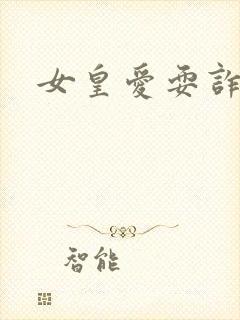 女皇愛耍詐
智能